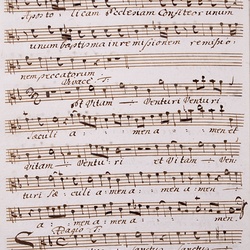 Aposto: licam Ecclesiam Confiteor unum
unum baptisma in remissionem remissio:
nem peccatorum
Vivace T.
et Vitam Venturi Venturi
sæculi a: men a: men et
Vitam Ventu: ri et Vitam Ven:
turi sæculi a: men a: men a: men
a: men a: men a: men
Adagio T.
Sanctus sanctus